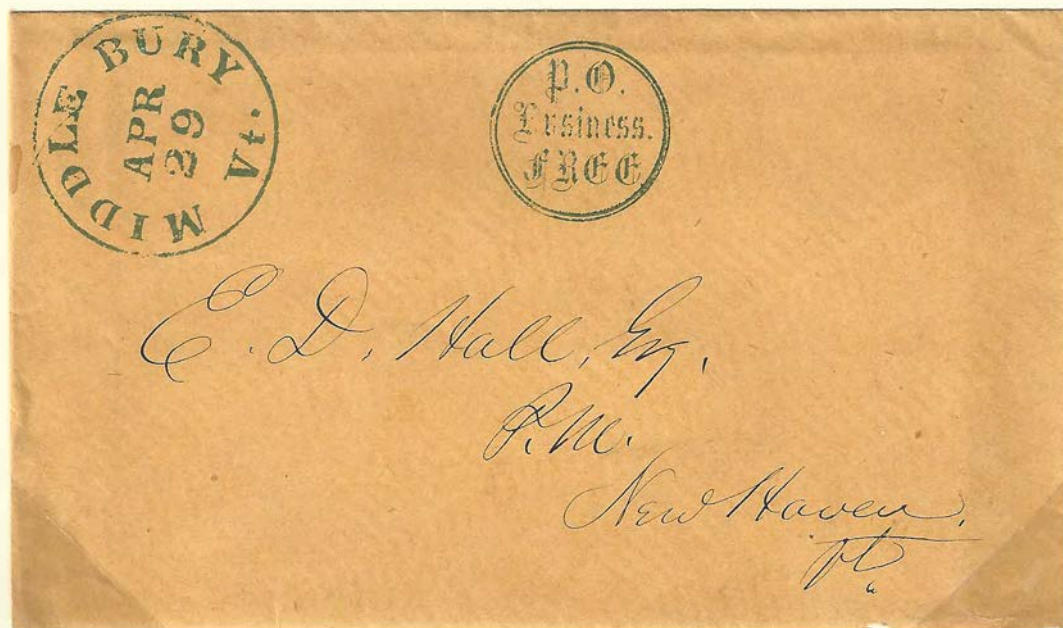 MIDDLEBURY Vt.
APR
29
P.O.
Business.
FREE
E. D. Hall, Esq.
P.M.
New Haven.
Vt.